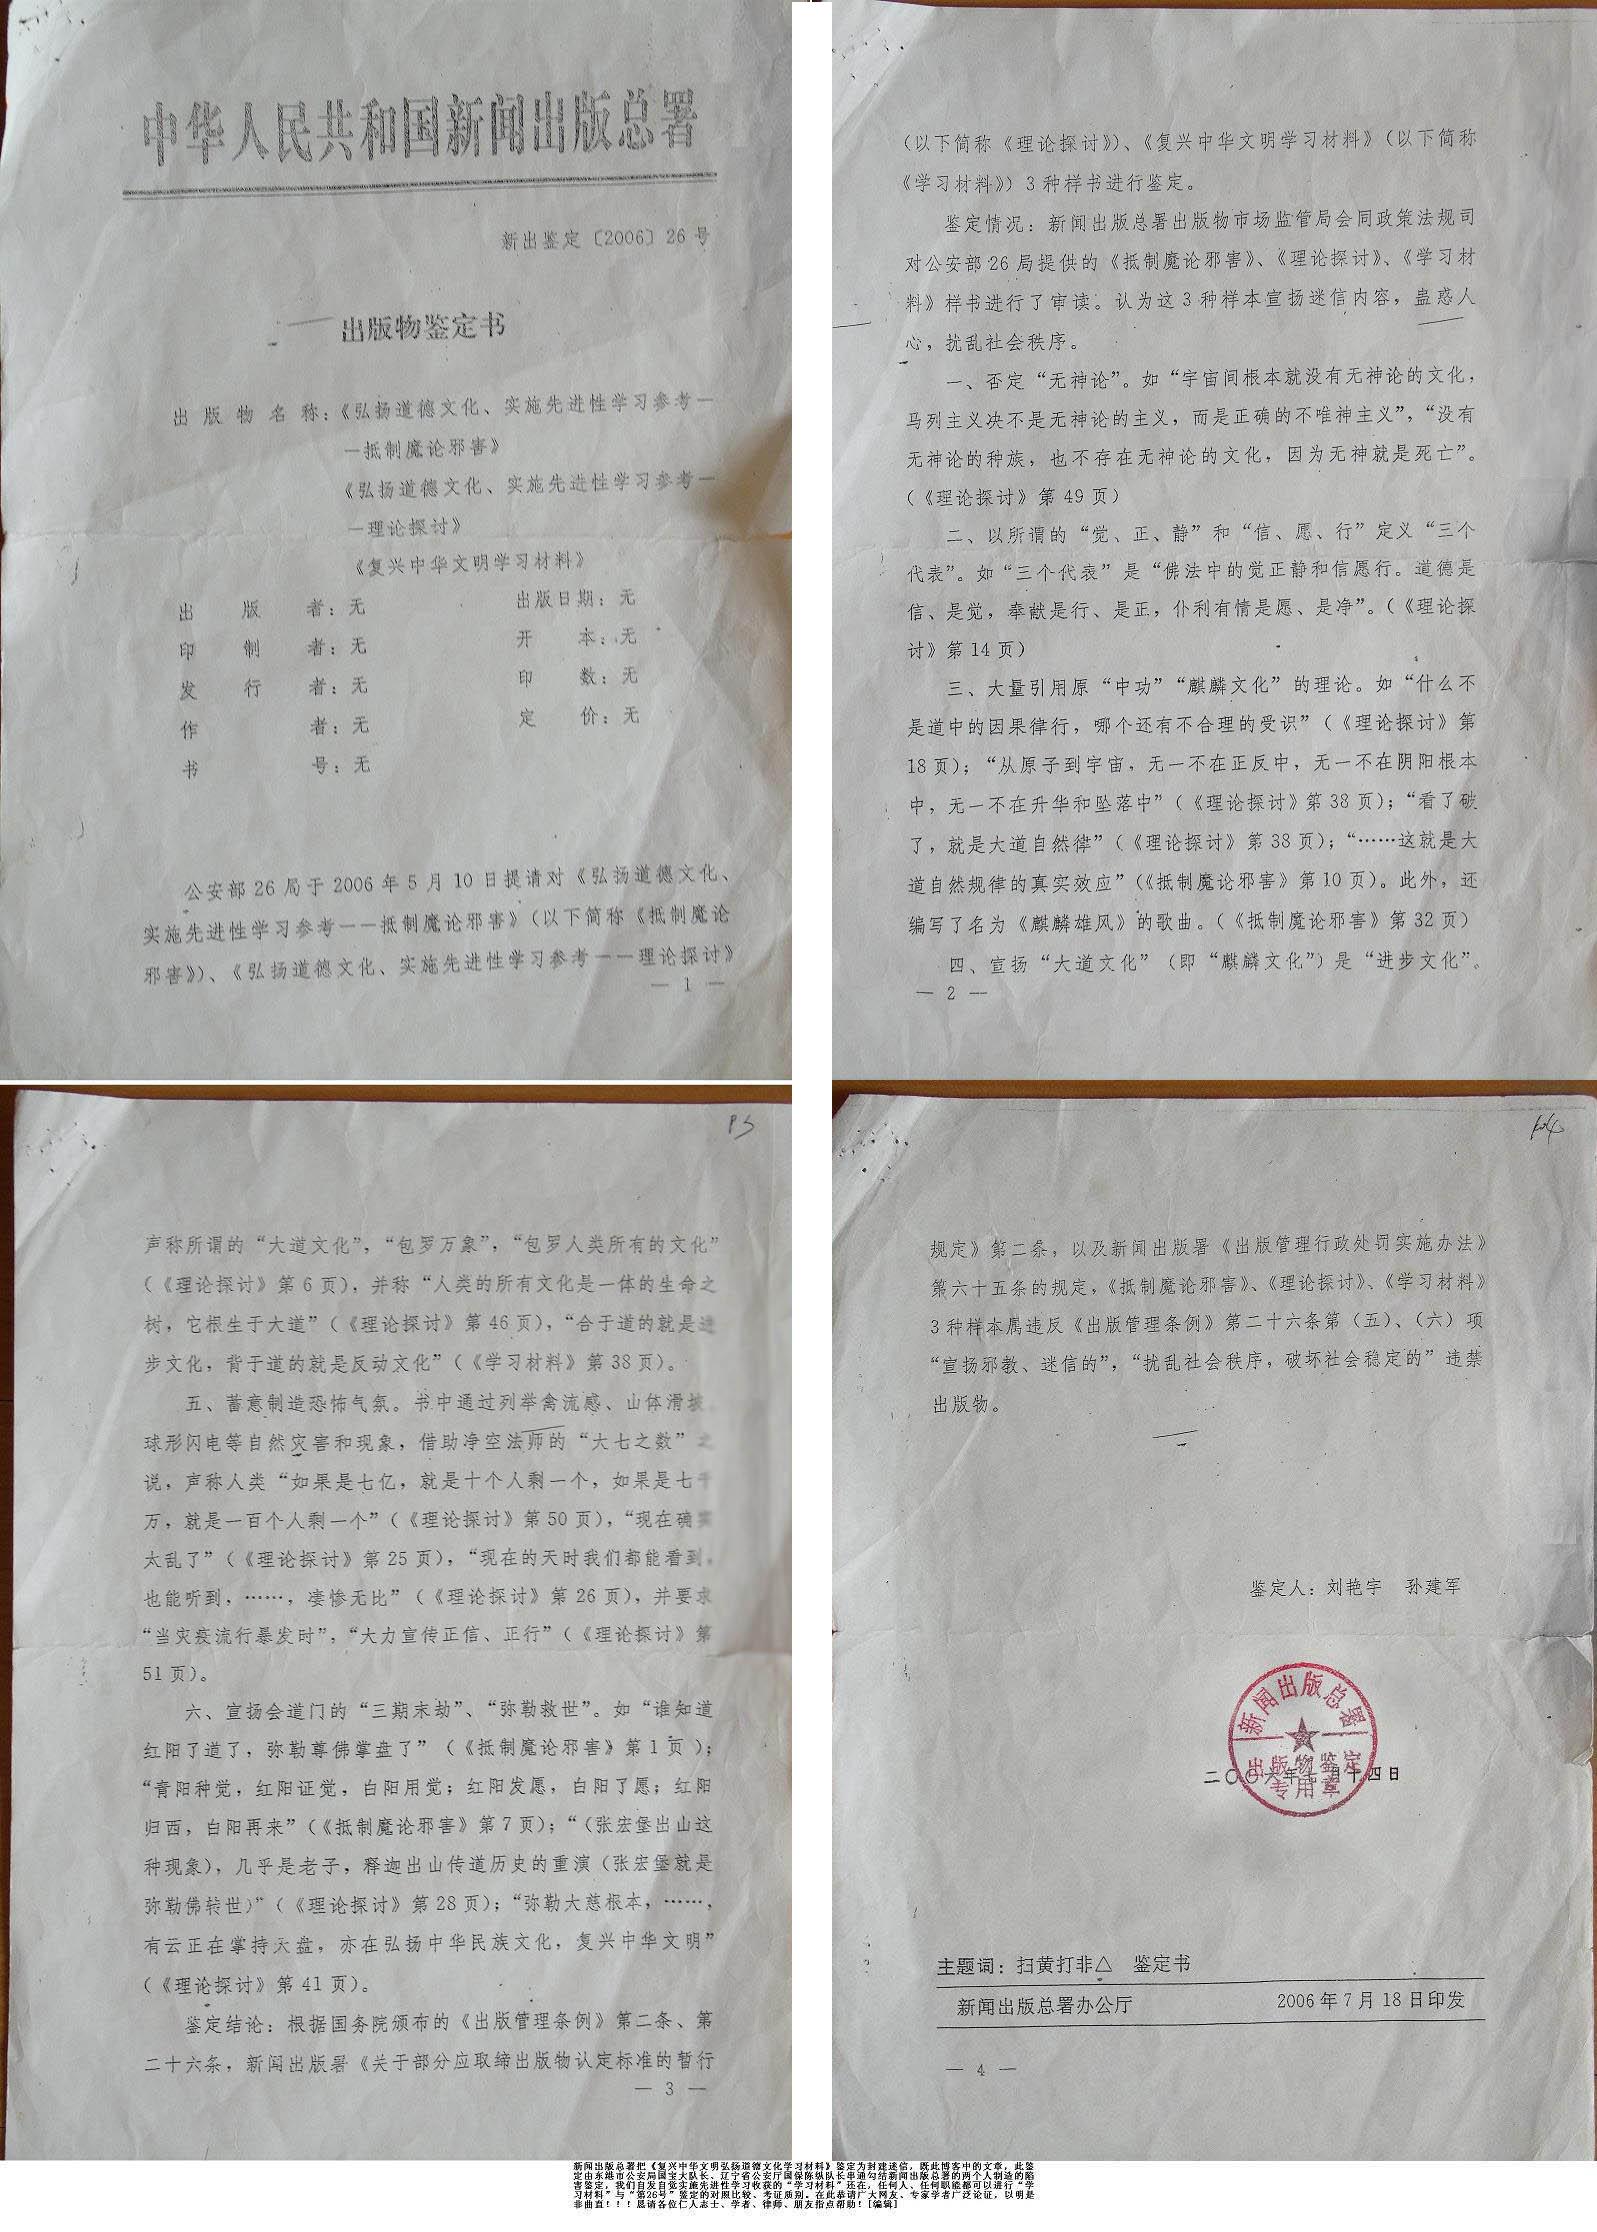 中华人民共和国新闻出版总署
新出鉴定〔2006〕26号
出版物鉴定书
出版物名称：《弘扬道德文化、实施先进性学习参考—
—抵制魔论邪害》
《弘扬道德文化、实施先进性学习参考—
—理论探讨》
《复兴中华文明学习材料》
出版者：无 出版日期：无
印制者：无 开本：无
发行者：无 印数：无
作者：无 定价：无
书号：无
公安部26局于2006年5月10日提请对《弘扬道德文化、
实施先进性学习参考——抵制魔论邪害》（以下简称《抵制魔论
邪害》）、《弘扬道德文化、实施先进性学习参考——理论探讨》
— 1 —
（以下简称《理论探讨》）、《复兴中华文明学习材料》（以下简称
《学习材料》）3种样书进行鉴定。
鉴定情况：新闻出版总署出版物市场监管局会同政策法规司
对公安部26局提供的《抵制魔论邪害》、《理论探讨》、《学习材
料》样书进行了审读。认为这3种样本宣扬迷信内容，蛊惑人
心，扰乱社会秩序。
一、否定“无神论”。如“宇宙间根本就没有无神论的文化，
马列主义决不是无神论的主义，而是正确的不唯神主义”，“没有
无神论的种族，也不存在无神论的文化，因为无神就是死亡”。
（《理论探讨》第49页）
二、以所谓的“觉、正、静”和“信、愿、行”定义“三个
代表”。如“三个代表”是“佛法中的觉正静和信愿行。道德是
信、是觉，奉献是行、是正，仆利有情是愿、是净”。（《理论探
讨》第14页）
三、大量引用原“中功”“麒麟文化”的理论。如“什么不
是道中的因果律行，哪个还有不合理的受识”（《理论探讨》第
18页）；“从原子到宇宙，无一不在正反中，无一不在阴阳根本
中，无一不在升华和坠落中”（《理论探讨》第38页）；“看了破
了，就是大道自然律”（《理论探讨》第38页）；“……这就是大
道自然规律的真实效应”（《抵制魔论邪害》第10页）。此外，还
编写了名为《麒麟雄风》的歌曲。（《抵制魔论邪害》第32页）
四、宣扬“大道文化”（即“麒麟文化”）是“进步文化”。
— 2 —
P3
声称所谓的“大道文化”，“包罗万象”，“包罗人类所有的文化”
（《理论探讨》第6页），并称“人类的所有文化是一体的生命之
树，它根生于大道”（《理论探讨》第46页），“合于道的就是进
步文化，背于道的就是反动文化”（《学习材料》第38页）。
五、蓄意制造恐怖气氛。书中通过列举禽流感、山体滑坡、
球形闪电等自然灾害和现象，借助净空法师的“大七之数”之
说，声称人类“如果是七亿，就是十个人剩一个，如果是七千
万，就是一百个人剩一个”（《理论探讨》第50页），“现在确实
太乱了”（《理论探讨》第25页），“现在的天时我们都能看到，
也能听到，……，凄惨无比”（《理论探讨》第26页），并要求
“当灾疫流行暴发时”，“大力宣传正信、正行”（《理论探讨》第
51页）。
六、宣扬会道门的“三期末劫”、“弥勒救世”。如“谁知道
红阳了道了，弥勒尊佛掌盘了”（《抵制魔论邪害》第1页）；
“青阳种觉，红阳证觉，白阳用觉；红阳发愿，白阳了愿；红阳
归西，白阳再来”（《抵制魔论邪害》第7页）；“（张宏堡出山这
种现象），几乎是老子，释迦出山传道历史的重演（张宏堡就是
弥勒佛转世）”（《理论探讨》第28页）；“弥勒大慈根本，……，
有云正在掌持天盘，亦在弘扬中华民族文化，复兴中华文明”
（《理论探讨》第41页）。
鉴定结论：根据国务院颁布的《出版管理条例》第二条、第
二十六条，新闻出版署《关于部分应取缔出版物认定标准的暂行
— 3 —
P4
规定》第二条，以及新闻出版署《出版管理行政处罚实施办法》
第六十五条的规定，《抵制魔论邪害》、《理论探讨》、《学习材料》
3种样本属违反《出版管理条例》第二十六条第（五）、（六）项
“宣扬邪教、迷信的”，“扰乱社会秩序，破坏社会稳定的”违禁
出版物。
鉴定人：刘艳宇 孙建军
新闻出版总署
出版物鉴定
专用章
二〇〇六年七月十四日
主题词：扫黄打非△ 鉴定书
新闻出版总署办公厅 2006年7月18日印发
— 4 —
新闻出版总署把《复兴中华文明弘扬道德文化学习材料》鉴定为封建迷信，既此博客中的文章，此鉴
定由东港市公安局国宝大队长、辽宁省公安厅国保陈纵队长串通勾结新闻出版总署的两个人制造的陷
害鉴定，我们自发自觉实施先进性学习收获的“学习材料”还在，任何人、任何职能都可以进行“学
习材料”与“第26号”鉴定的对照比较、考证质别。在此恭请广大网友、专家学者广泛论证，以明是
非曲直！！！恳请各位仁人志士、学者、律师、朋友指点帮助！[编辑]